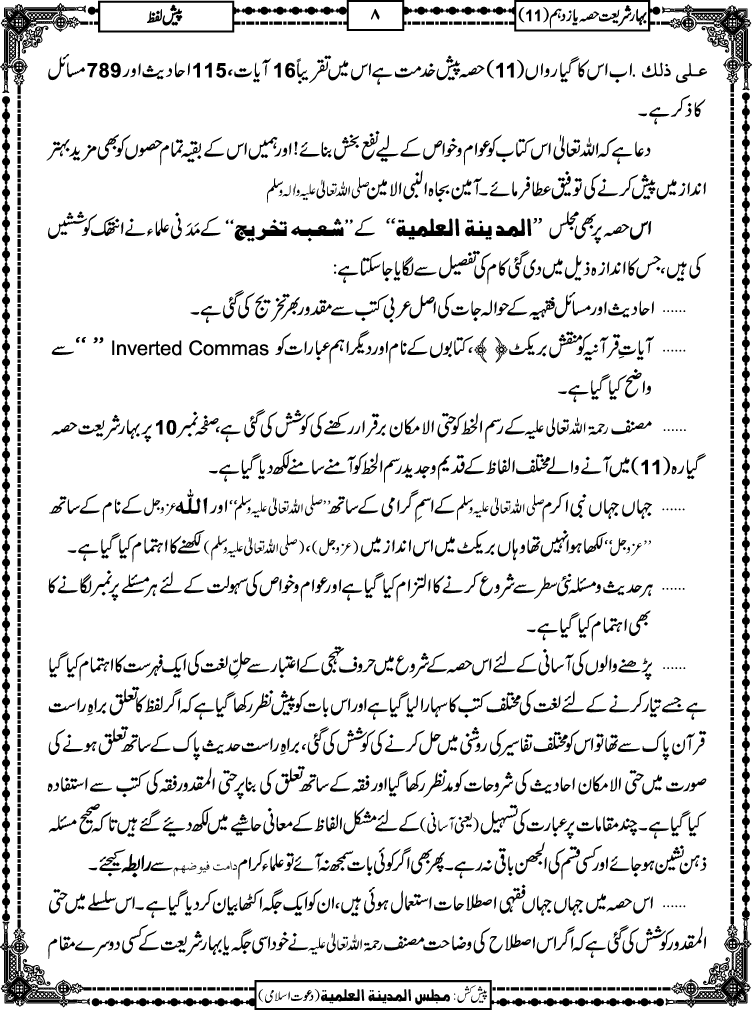 بہارشریعت حصہ یازدہم (11)
۸
پیش لفظ
علی ذلك . اب اس کا گیارواں (11) حصہ پیش خدمت ہے اس میں تقریباً 16 آیات، 115 احادیث اور 789 مسائل
کا ذکر ہے۔
دعا ہے کہ اللہ تعالیٰ اس کتاب کو عوام و خواص کے لیے نفع بخش بنائے! اور ہمیں اس کے بقیہ تمام حصوں کو بھی مزید بہتر
انداز میں پیش کرنے کی توفیق عطا فرمائے۔ آمین بجاہ النبی الامین صلی اللہ تعالیٰ علیہ والہ وسلم
اس حصہ پر بھی مجلس ”المدینة العلمیة“ کے ”شعبہ تخریج“ کے مَدَنی علماء نے انتھک کوششیں
کی ہیں، جس کا اندازہ ذیل میں دی گئی کام کی تفصیل سے لگایا جاسکتا ہے:
...... احادیث اور مسائل فقہیہ کے حوالہ جات کی اصل عربی کتب سے مقدور بھر تخریج کی گئی ہے۔
...... آیاتِ قرآنیہ کو منقش بریکٹ ﴿ ﴾، کتابوں کے نام اور دیگر اہم عبارات کو Inverted Commas ” “ سے
واضح کیا گیا ہے۔
...... مصنف رحمۃ اللہ تعالیٰ علیہ کے رسم الخط کو حتی الامکان برقرار رکھنے کی کوشش کی گئی ہے، صفحہ نمبر 10 پر بہارشریعت حصہ
گیارہ (11) میں آنے والے مختلف الفاظ کے قدیم و جدید رسم الخط کو آمنے سامنے لکھ دیا گیا ہے۔
...... جہاں جہاں نبی اکرم صلی اللہ تعالیٰ علیہ وسلم کے اسمِ گرامی کے ساتھ ”صلی اللہ تعالیٰ علیہ وسلم“ اور اللہ عزوجل کے نام کے ساتھ
”عزوجل“ لکھا ہوا نہیں تھا وہاں بریکٹ میں اس انداز میں (عزوجل)، (صلی اللہ تعالیٰ علیہ وسلم) لکھنے کا اہتمام کیا گیا ہے۔
...... ہر حدیث و مسئلہ نئی سطر سے شروع کرنے کا التزام کیا گیا ہے اور عوام و خواص کی سہولت کے لئے ہر مسئلے پر نمبر لگانے کا
بھی اہتمام کیا گیا ہے۔
...... پڑھنے والوں کی آسانی کے لئے اس حصہ کے شروع میں حروف تہجی کے اعتبار سے حلِّ لغت کی ایک فہرست کا اہتمام کیا گیا
ہے جسے تیار کرنے کے لئے لغت کی مختلف کتب کا سہارا لیا گیا ہے اور اس بات کو پیش نظر رکھا گیا ہے کہ اگر لفظ کا تعلق براہِ راست
قرآن پاک سے تھا تو اس کو مختلف تفاسیر کی روشنی میں حل کرنے کی کوشش کی گئی، براہِ راست حدیث پاک کے ساتھ تعلق ہونے کی
صورت میں حتی الامکان احادیث کی شروحات کو مدنظر رکھا گیا اور فقہ کے ساتھ تعلق کی بنا پر حتی المقدور فقہ کی کتب سے استفادہ
کیا گیا ہے۔ چند مقامات پر عبارت کی تسہیل (یعنی آسانی) کے لئے مشکل الفاظ کے معانی حاشیے میں لکھ دیئے گئے ہیں تا کہ صحیح مسئلہ
ذہن نشین ہو جائے اور کسی قسم کی الجھن باقی نہ رہے۔ پھر بھی اگر کوئی بات سمجھ نہ آئے تو علماء کرام دامت فیوضھم سے رابطہ کیجئے۔
...... اس حصہ میں جہاں جہاں فقہی اصطلاحات استعمال ہوئی ہیں، ان کو ایک جگہ اکٹھا بیان کر دیا گیا ہے۔ اس سلسلے میں حتی
المقدور کوشش کی گئی ہے کہ اگر اس اصطلاح کی وضاحت مصنف رحمۃ اللہ تعالیٰ علیہ نے خود اسی جگہ یا بہار شریعت کے کسی دوسرے مقام
پیش کش: مجلس المدینة العلمیة (دعوت اسلامی)